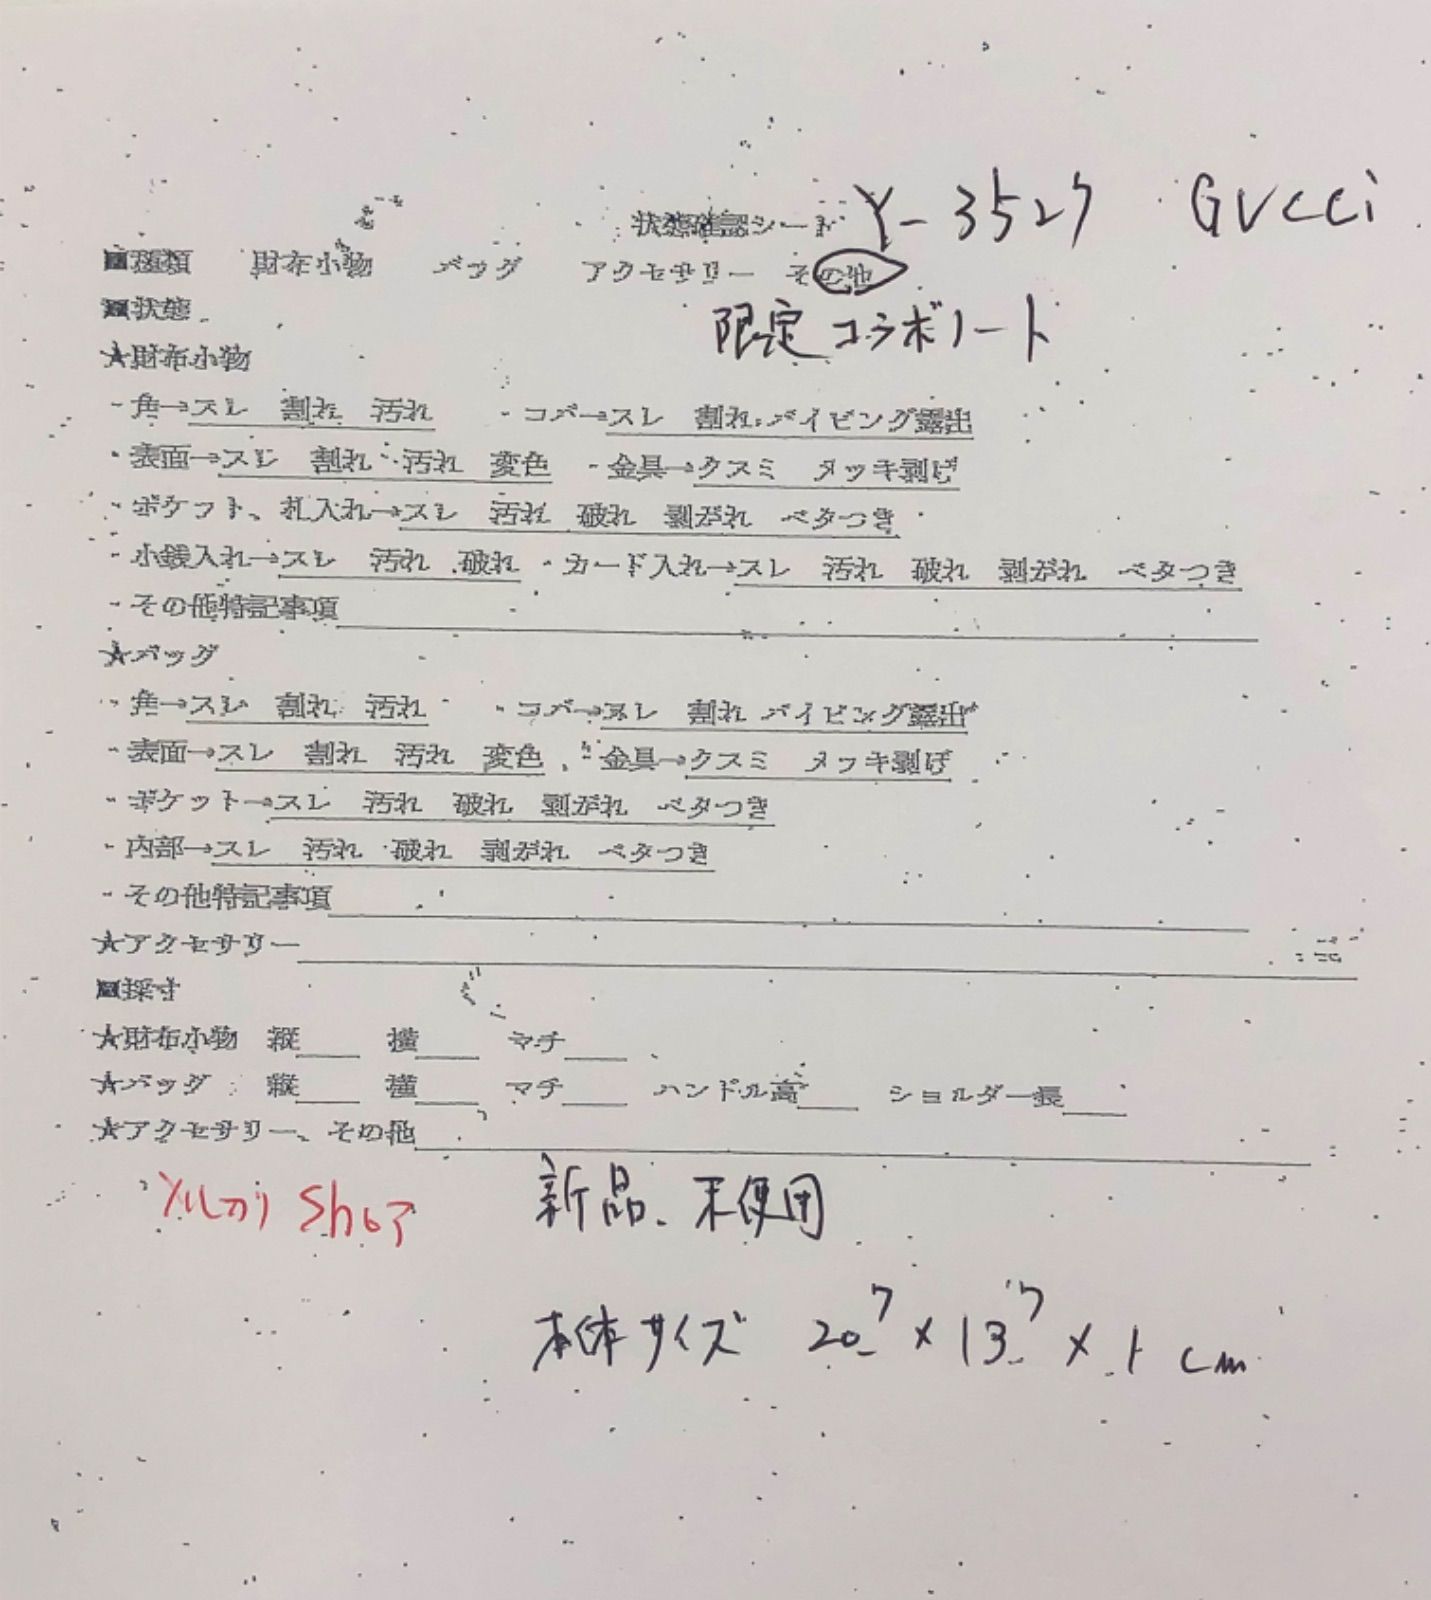 状態確認シート Y-3527 GUCCi
■種類 財布小物 バッグ アクセサリー その他
■状態 限定コラボノート
★財布小物
・角→スレ 割れ 汚れ ・コバ→スレ 割れ パイピング露出
・表面→スレ 割れ 汚れ 変色 ・金具→クスミ メッキ剥げ
・ポケット、札入れ→スレ 汚れ 破れ 剥がれ ベタつき
・小銭入れ→スレ 汚れ 破れ ・カード入れ→スレ 汚れ 破れ 剥がれ ベタつき
・その他特記事項
★バッグ
・角→スレ 割れ 汚れ ・コバ→スレ 割れ パイピング露出
・表面→スレ 割れ 汚れ 変色 ・金具→クスミ メッキ剥げ
・ポケット→スレ 汚れ 破れ 剥がれ ベタつき
・内部→スレ 汚れ 破れ 剥がれ ベタつき
・その他特記事項
★アクセサリー
■採寸
★財布小物 縦 横 マチ
★バッグ 縦 横 マチ ハンドル高 ショルダー長
★アクセサリー、その他
メルカリ 新品、未使用
本体サイズ 20.7×13.7×1cm